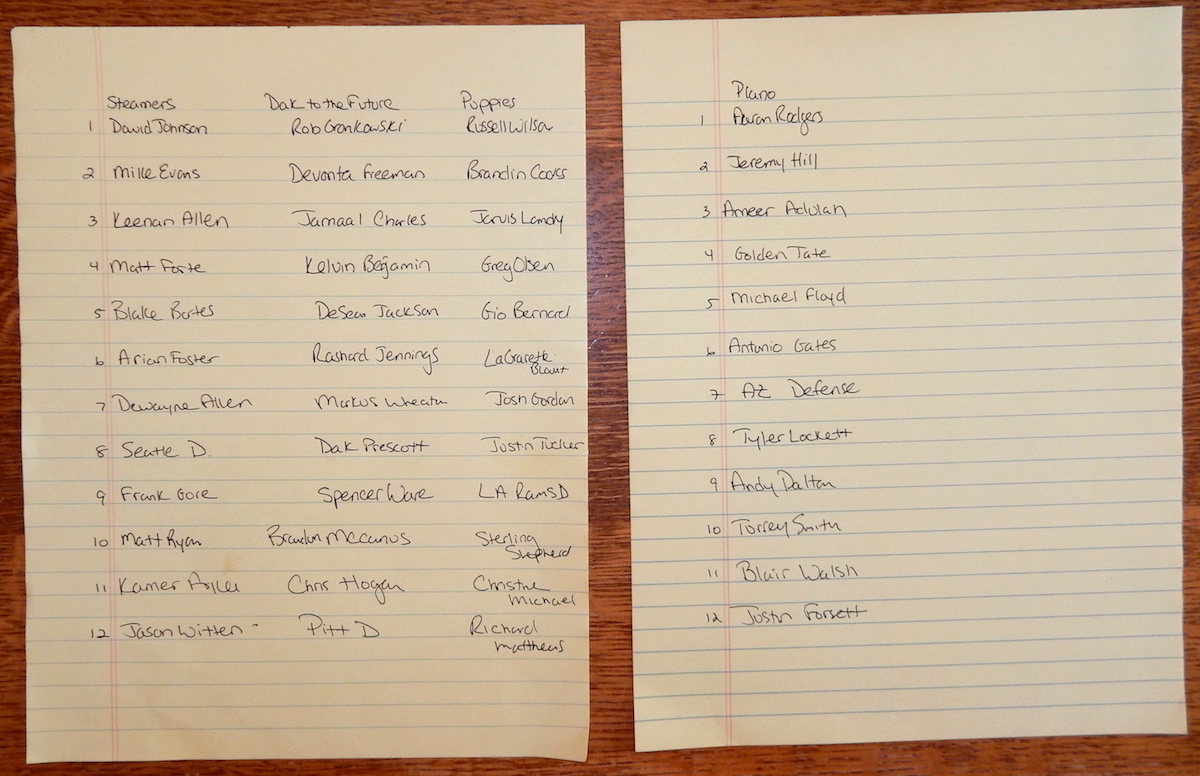 Steamers Dak to the Future Puppies
1 David Johnson Rob Gronkowski Russell Wilson
2 Mike Evans Devonta Freeman Brandin Cooks
3 Keenan Allen Jamaal Charles Jarvis Landy
4 Matt Forte Kelvin Benjamin Greg Olsen
5 Blake Bortes DeSean Jackson Gio Bernard
6 Arian Foster Rashard Jennings LaGarette
Blount
7 Dewayne Allen Markus Wheatn Josh Gordan
8 Seattle D. Dak Prescott Justin Tucker
9 Frank Gore Spencer Ware LA Rams D
10 Matt Ryan Brandon Mccanus Sterling
Shepherd
11 Kamer Chris Hogan Christine
Michael
12 Jason Witten - Pitt D Richard
Matthews
Plano
1 Aaron Rodgers
2 Jeremy Hill
3 Ameer Adulah
4 Golden Tate
5 Michael Floyd
6 Antonio Gates
7 AZ Defense
8 Tyler Lockett
9 Andy Dalton
10 Torrey Smith
11 Blair Walsh
12 Justin Forsett